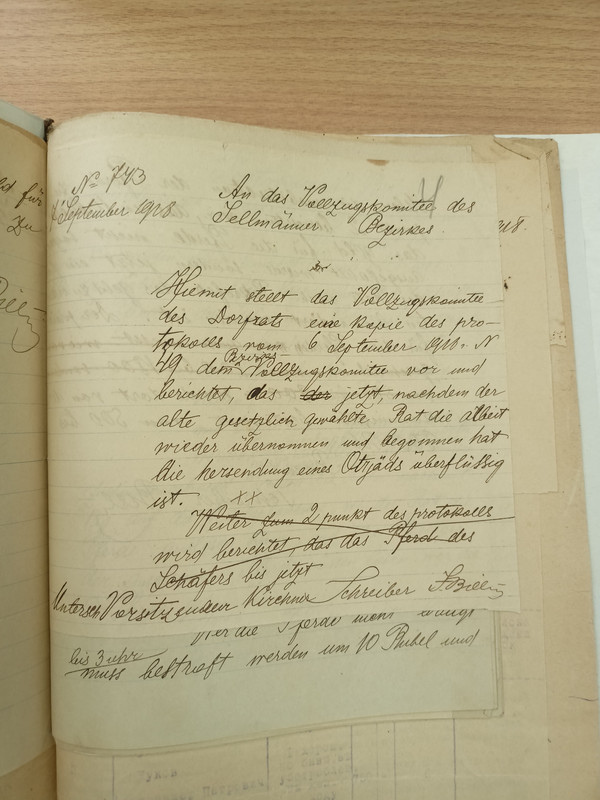 № 743
7 September 1918.
An das Vollzugskomitee des
Sellmänner Bezirkes.
Hiemit stellt das Vollzugskomitee
des Dorfrats eine Kopie des pro-
tokolls vom 6 September 1918. N
49 dem Bezirks-Vollzugskomitee vor und
berichtet, das der jetzt, nachdem der
alte gesetzlich gewählte Rat die arbeit
wieder übernommen und begonnen hat
die hersendung eines Otrjäds überflüssig
ist. ××
Weiter zum 2 punkt des protokolls
wird berichtet, das das Pferd des
Schäfers bis jetzt
Untersch Vorsitzender Kirchner Schreiber
die Pferde
bis 3 uhr
muss bestraft werden um 10 Rubel und